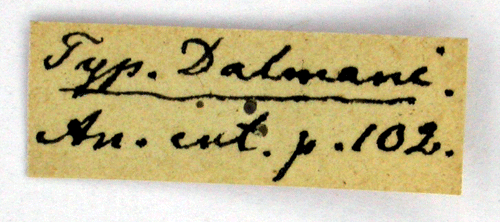 Typ. Dalmani.
An. ent. p. 102.